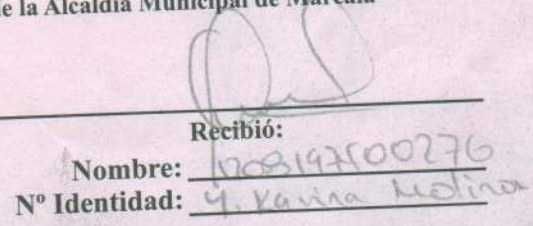 de la Alcaldía Municipal de Marcala
Recibió:
Nombre: 1208197500276
Nº Identidad: Y. Karina Molina